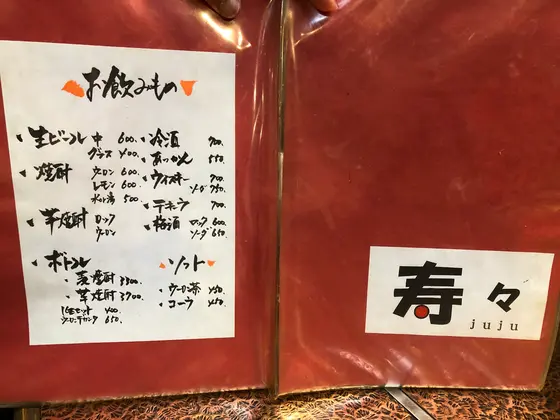 お飲みもの
・生ビール 中 600.
グラス 400.
・焼酎 ウーロン 600.
レモン 600.
水お湯 500.
・芋焼酎 ロック
ウーロン
・ボトル
・麦焼酎 3300.
・芋焼酎 3700.
400.
650.
・冷酒 900.
・あつかん 550.
・ウィスキー 700.
ソーダ 750.
700.
・梅酒 ロック 600.
ソーダ 650.
ソフト
・ウーロン茶 450
・コーラ 450
寿々
juju